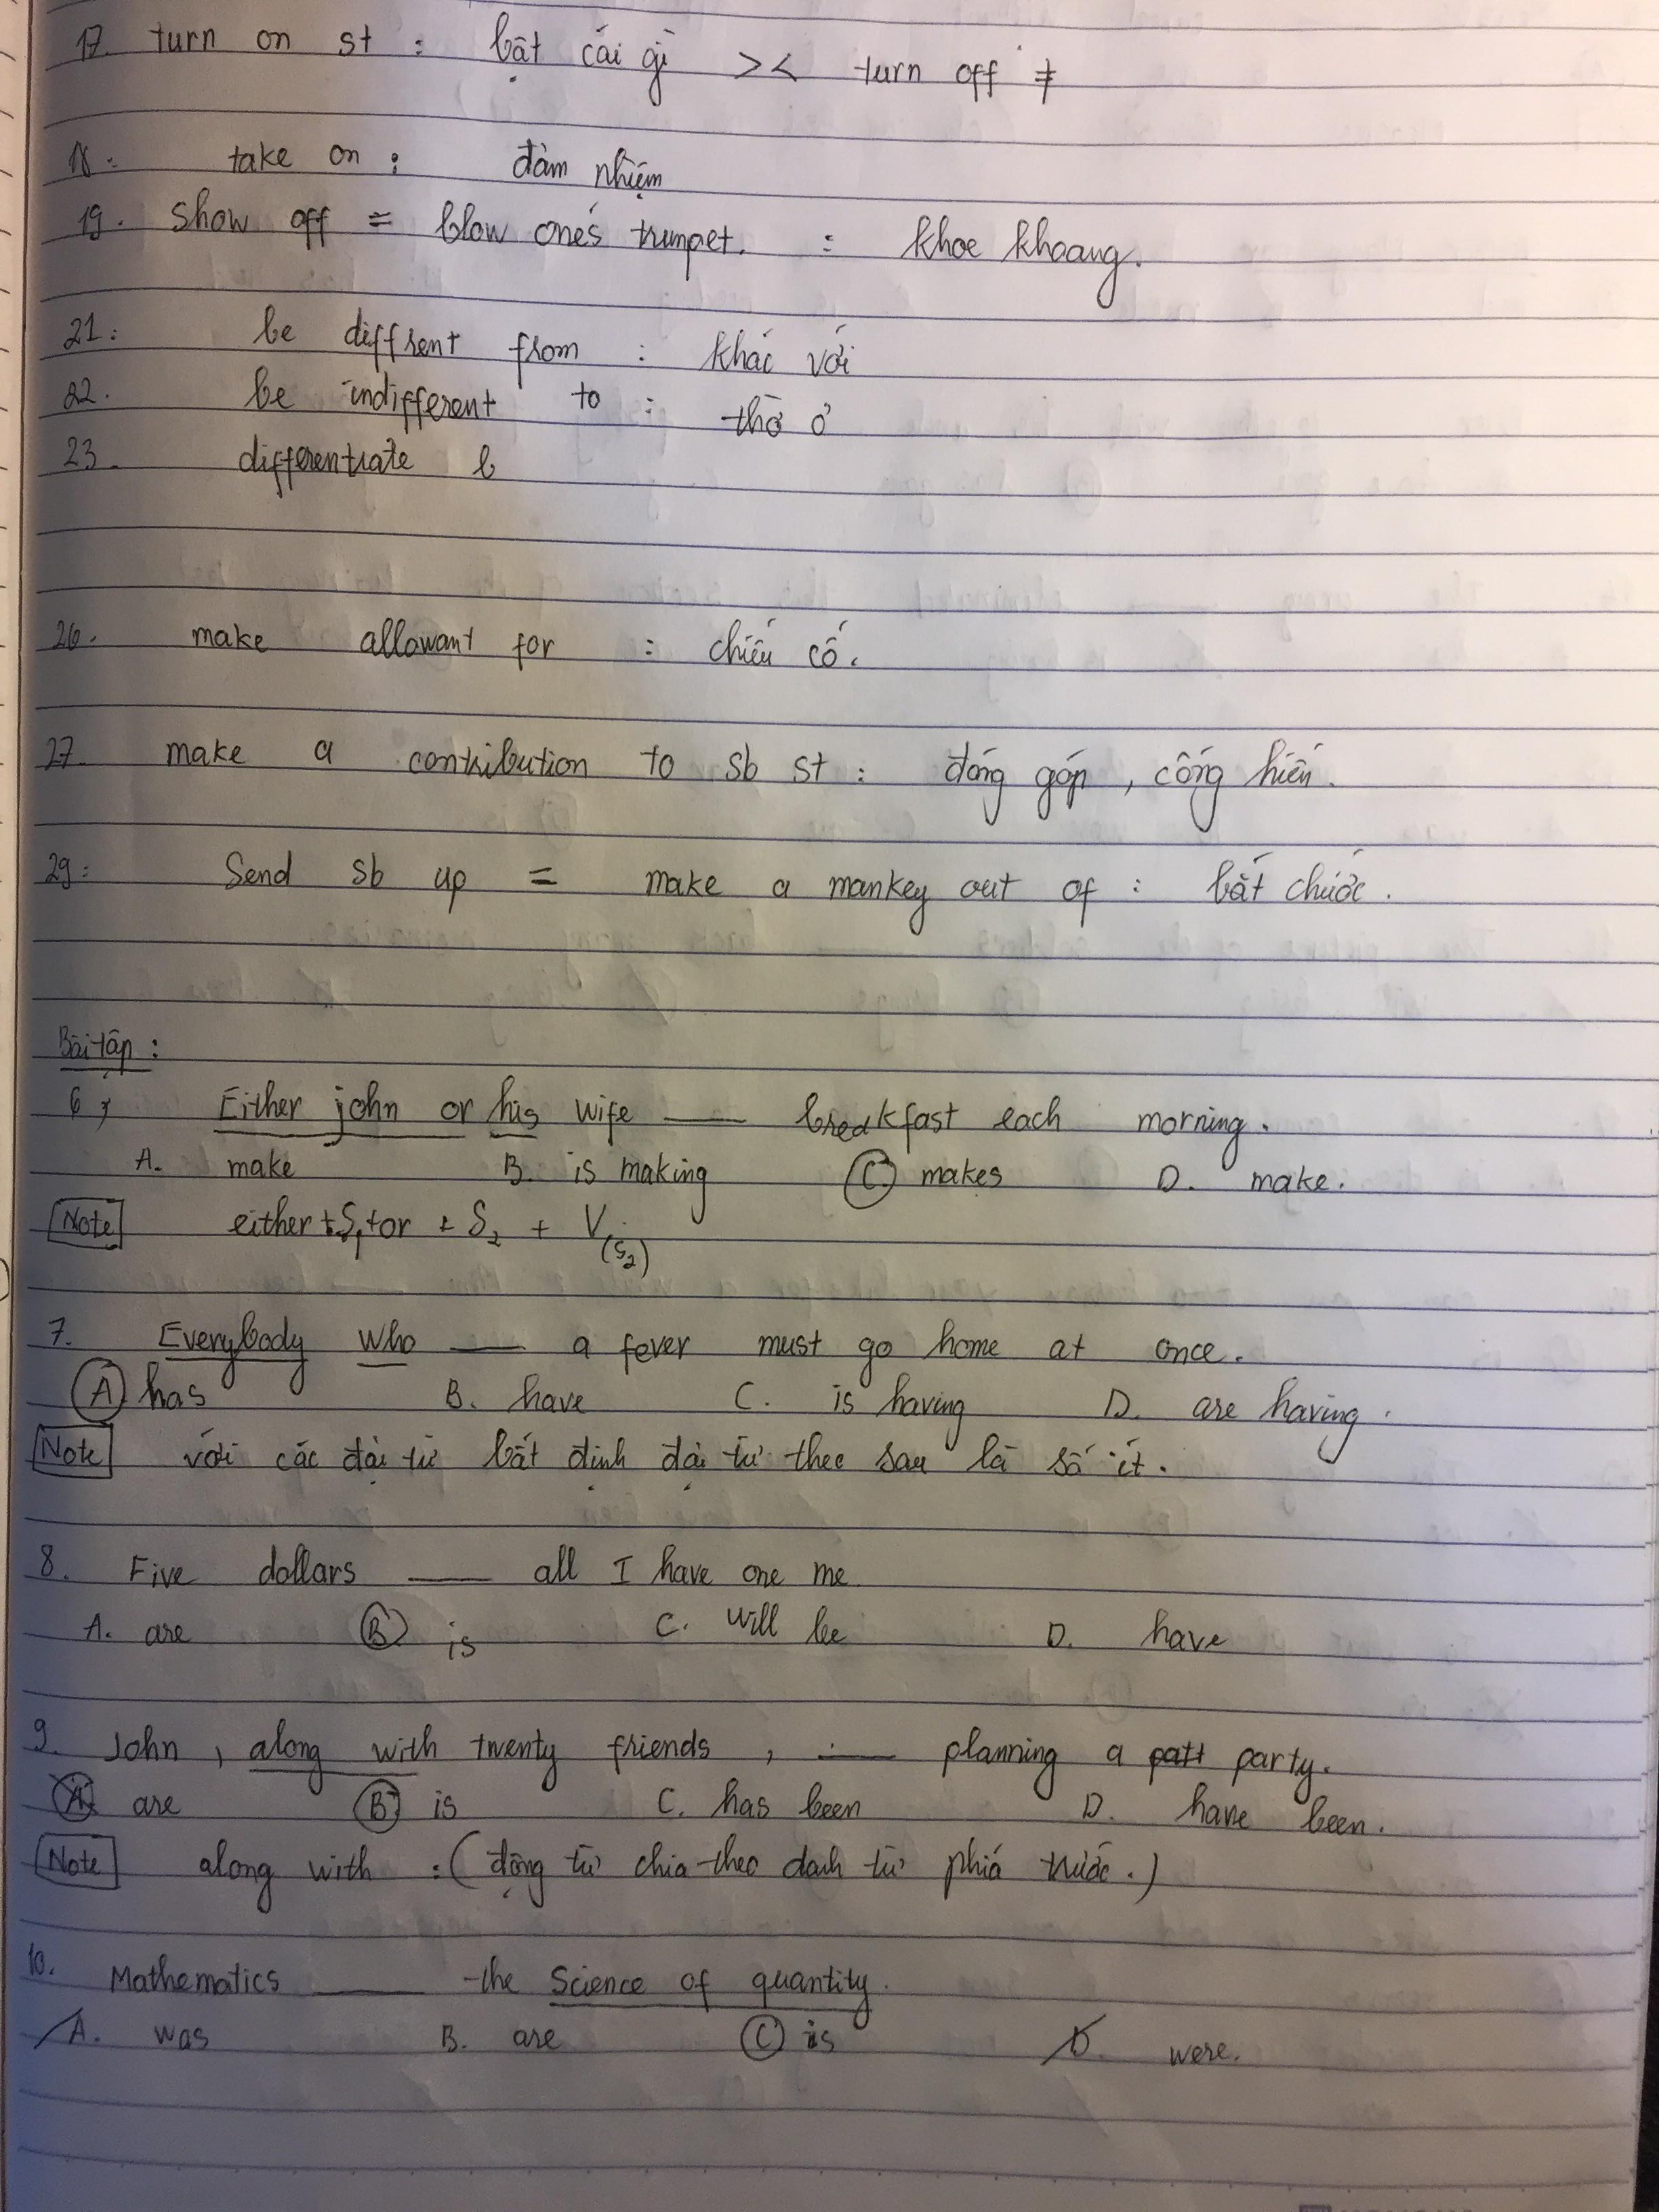 17. turn on st : bật cái gì >< turn off ≠
18. take on : đảm nhiệm
19. show off = blow one's trumpet. : khoe khoang.
21: be diffrent from : khác với
22. be indifferent to : thờ ơ
23. differentiate b
26. make allowant for : chiếu cố.
27. make a contribution to sb st : đóng góp, cống hiến.
29: Send sb up = make a mankey out of : bắt chước.
Bài tập :
6, Either john or his wife ___ breakfast each morning.
A. make B. is making C. makes D. make.
Note either + S1 + or + S2 + V(S2)
7. Everybody who ___ a fever must go home at once.
A has B. have C. is having D. are having.
Note với các đại từ bất định đại từ theo sau là số ít.
8. Five dollars ___ all I have one me
A. are B is C. will be D. have
9. John , along with twenty friends , ___ planning a patt party.
A. are B is C. has been D. have been.
Note along with : ( động từ chia theo danh từ phiá trước. )
10. Mathematics ___ the Science of quantity.
A. was B. are C is D. were.